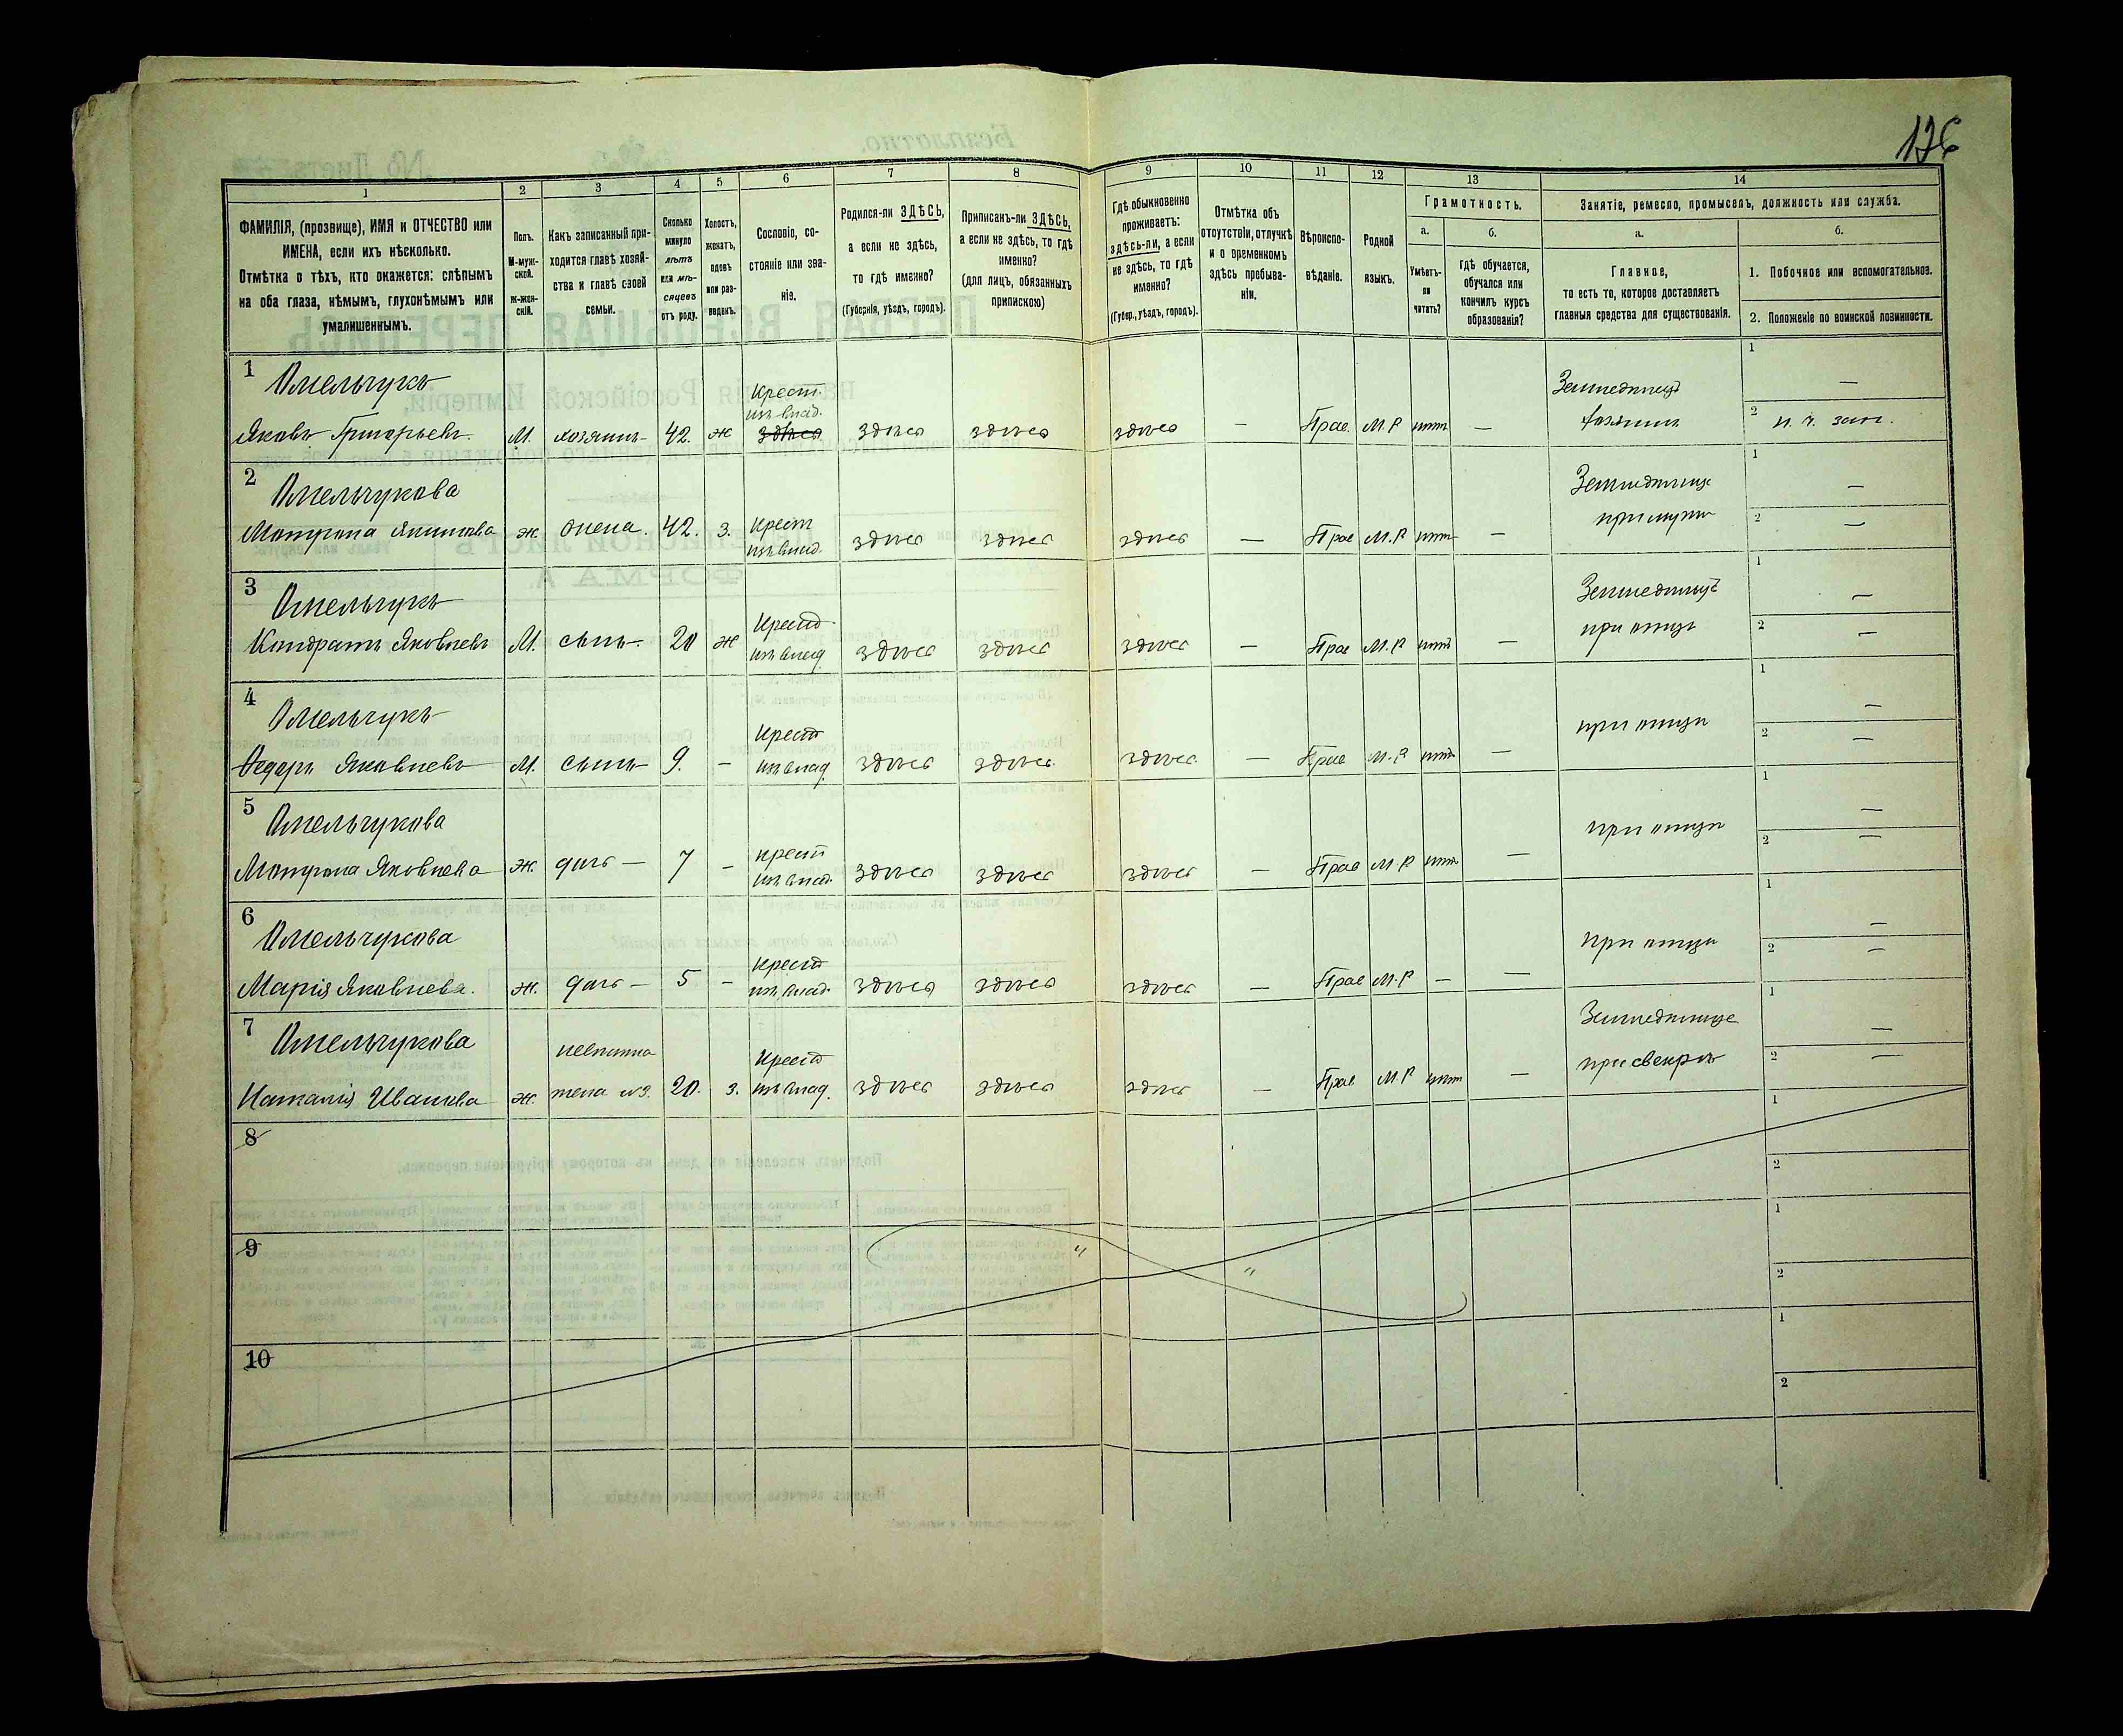 126
1
2
3
4
5
6
7
8
9
10
11
12
13
14
ФАМИЛІЯ, (прозвище), ИМЯ и ОТЧЕСТВО или
ИМЕНА, если ихъ нѣсколько.
Отмѣтка о тѣхъ, кто окажется: слѣпымъ
на оба глаза, нѣмымъ, глухонѣмымъ или
умалишеннымъ.
Полъ.
М-муж-
ской.
ж-жен-
скій.
Какъ записанный при-
ходится главѣ хозяй-
ства и главѣ своей
семьи.
Сколько
минуло
лѣтъ
или мѣ-
сяцевъ
отъ роду.
Холостъ,
женатъ,
вдовъ
или раз-
веденъ.
Сословіе, со-
стояніе или зва-
ніе.
Родился-ли ЗДѢСЬ,
а если не здѣсь,
то гдѣ именно?
(Губернія, уѣздъ, городъ).
Приписанъ-ли ЗДѢСЬ,
а если не здѣсь, то гдѣ
именно?
(для лицъ, обязанныхъ
припискою)
Гдѣ обыкновенно
проживаетъ:
здѣсь-ли, а если
не здѣсь, то гдѣ
именно?
(Губер., уѣздъ, городъ).
Отмѣтка объ
отсутствіи, отлучкѣ
и о временномъ
здѣсь пребыва-
ніи.
Вѣроиспо-
вѣданіе.
Родной
языкъ.
Грамотность.
а.
Умѣетъ-
ли
читать?
б.
гдѣ обучается,
обучался или
кончилъ курсъ
образованія?
Занятіе, ремесло, промыселъ, должность или служба.
а.
Главное,
то есть то, которое доставляетъ
главныя средства для существованія.
б.
1. Побочное или вспомогательное.
2. Положеніе по воинской повинности.
1
Омельчукъ
Яковъ Григорьевъ.
М.
хозяинъ
42.
ж
Крест.
изъ влад.
здѣсь
здѣсь
здѣсь
—
Прав.
М.Р
нѣтъ
—
Земледѣлецъ
хозяинъ
1
—
2
2
Омельчукова
Матрона Якимова
ж.
жена.
42.
з.
Крест
изъ влад.
здѣсь
здѣсь
здѣсь
—
Прав
М.Р
нѣтъ
—
Земледѣлице
при мужѣ
1
—
2
—
3
Омельчукъ
Кондратъ Яковлевъ
М.
сынъ
20
ж
Крест.
изъ влад
здѣсь
здѣсь
здѣсь
—
Прав
М.Р
нѣтъ
—
Земледѣлецъ
при отцѣ
1
—
2
—
4
Омельчукъ
Ѳедоръ Яковлевъ
М.
сынъ
9.
—
Крест
изъ влад
здѣсь
здѣсь
здѣсь
—
Прав
М.Р
нѣтъ
—
при отцѣ
1
—
2
—
5
Омельчукова
Матрона Яковлева
ж.
дочь —
7
—
крест
изъ влад.
здѣсь
здѣсь
здѣсь
—
Прав
М.Р
нѣтъ
—
при отцѣ
1
—
2
—
6
Омельчукова
Марія Яковлева.
ж.
дочь —
5
—
Крест
изъ влад.
здѣсь
здѣсь
здѣсь
—
Прав
М.Р
—
—
при отцѣ
1
—
2
—
7
Омельчукова
Наталія Иванова
ж.
невѣстка
жена №3.
20.
з.
Крест
изъ влад.
здѣсь
здѣсь
здѣсь
—
Прав
М.Р
нѣтъ
—
Земледѣлице
при свекрѣ
1
—
2
—
8
1
2
9
1
2
10
1
2